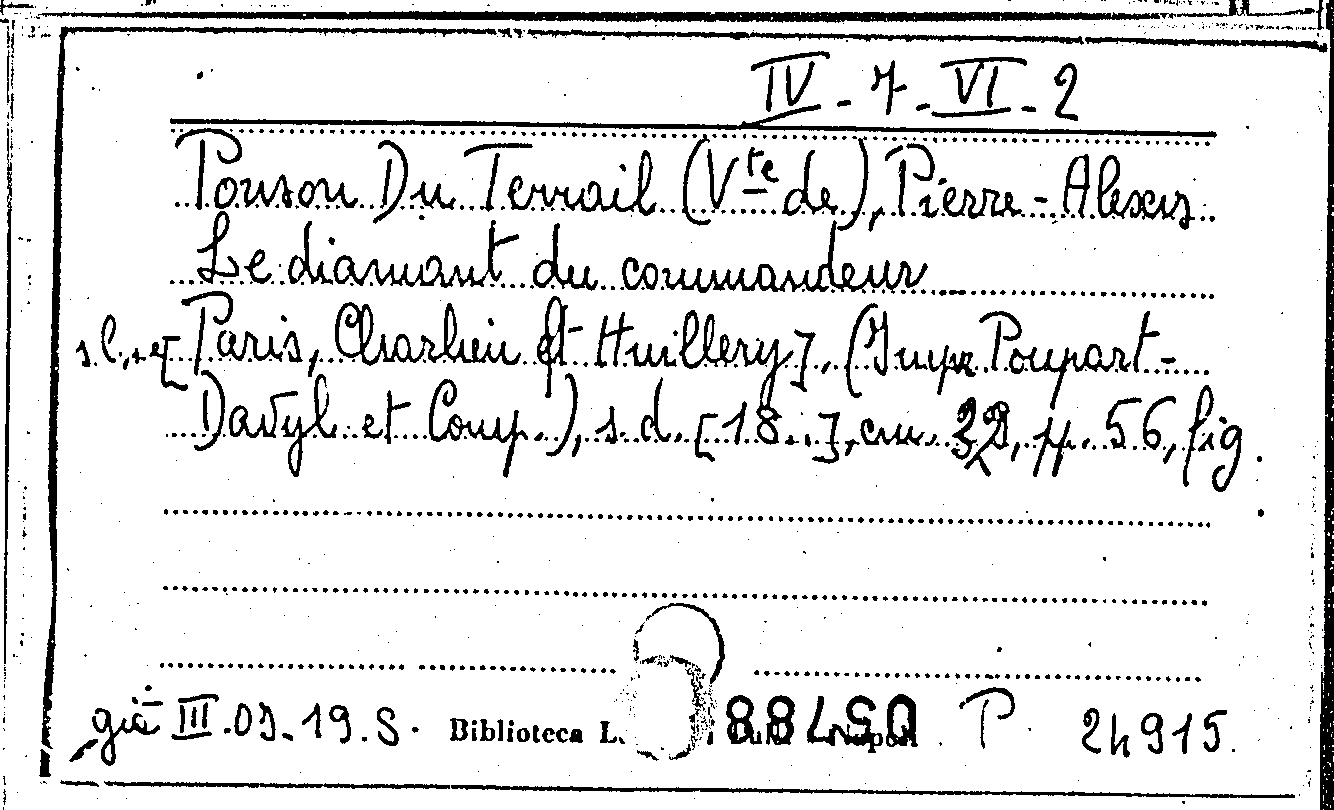 IV - 7 - VI - 2
Ponson Du Terrail (Vte de), Pierre-Alexis
Le diamant du commandeur
s. l., [Paris, Charlieu et Huillery], (Imp. Poupart-
Davyl et Comp.), s. d. [18..], cm. 32, pp. 56, fig.
già III.05.19.S. Biblioteca L. 05788 P 24915